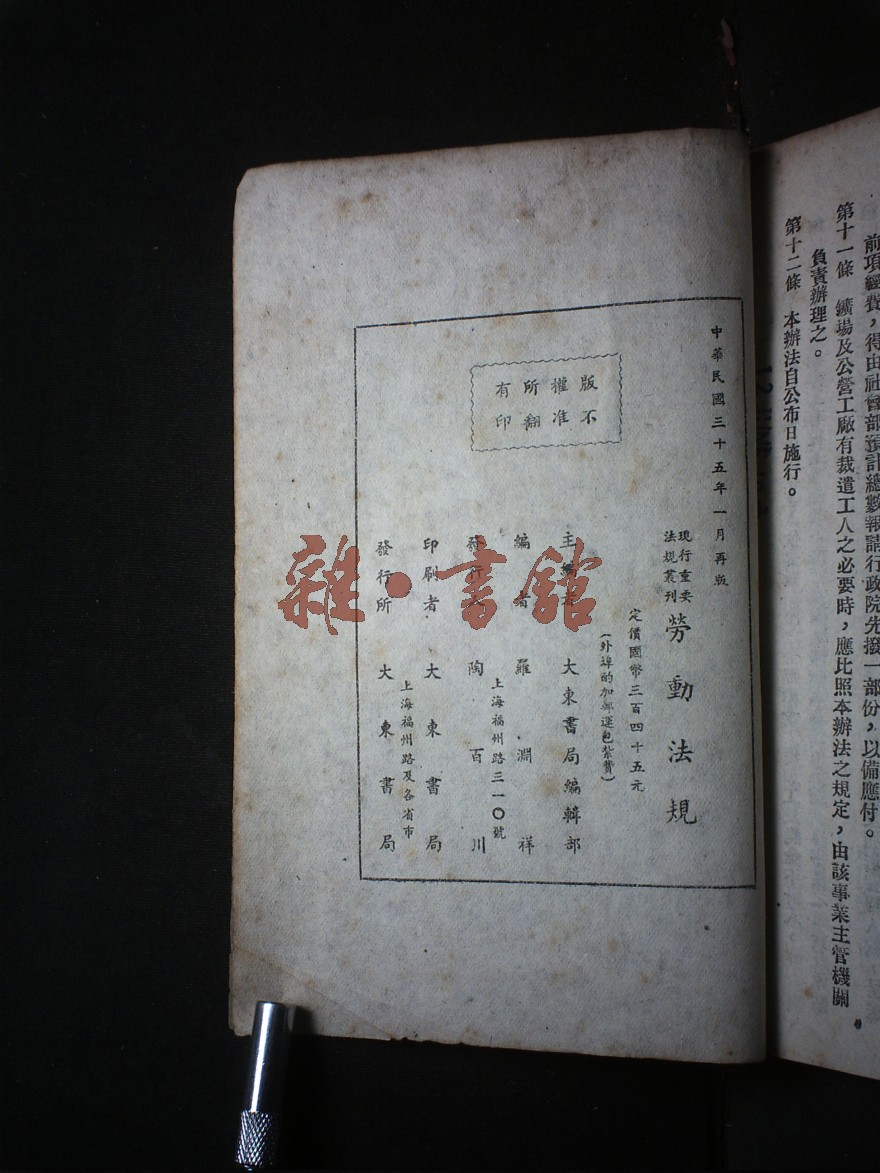 前項經費，得由社會部預計總數報請行政院先撥一部份，以備應付。
第十一條　鑛場及公營工廠有裁遣工人之必要時，應比照本辦法之規定，由該事業主管機關
負責辦理之。
第十二條　本辦法自公布日施行。
中華民國三十五年一月再版
現行重要
法規叢刊
勞動法規
定價國幣三百四十五元
（外埠酌加郵運包紮費）
版權所有
不准翻印
主編者　大東書局編輯部
編者　羅淵祥
上海福州路三一〇號
發行人　陶百川
印刷者　大東書局
上海福州路及各省市
發行所　大東書局
雜·書館